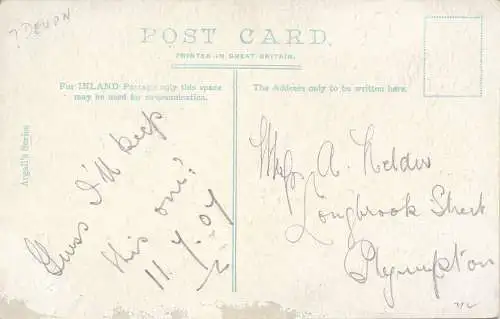 ? DEVON
POST CARD.
PRINTED IN GREAT BRITAIN.
For INLAND Postage only this space
may be used for communication.
The Address only to be written here.
Argall's Series
Guess I'll keep
this one!
11.7.07
Miss A.
Longbrook Street
Plympton